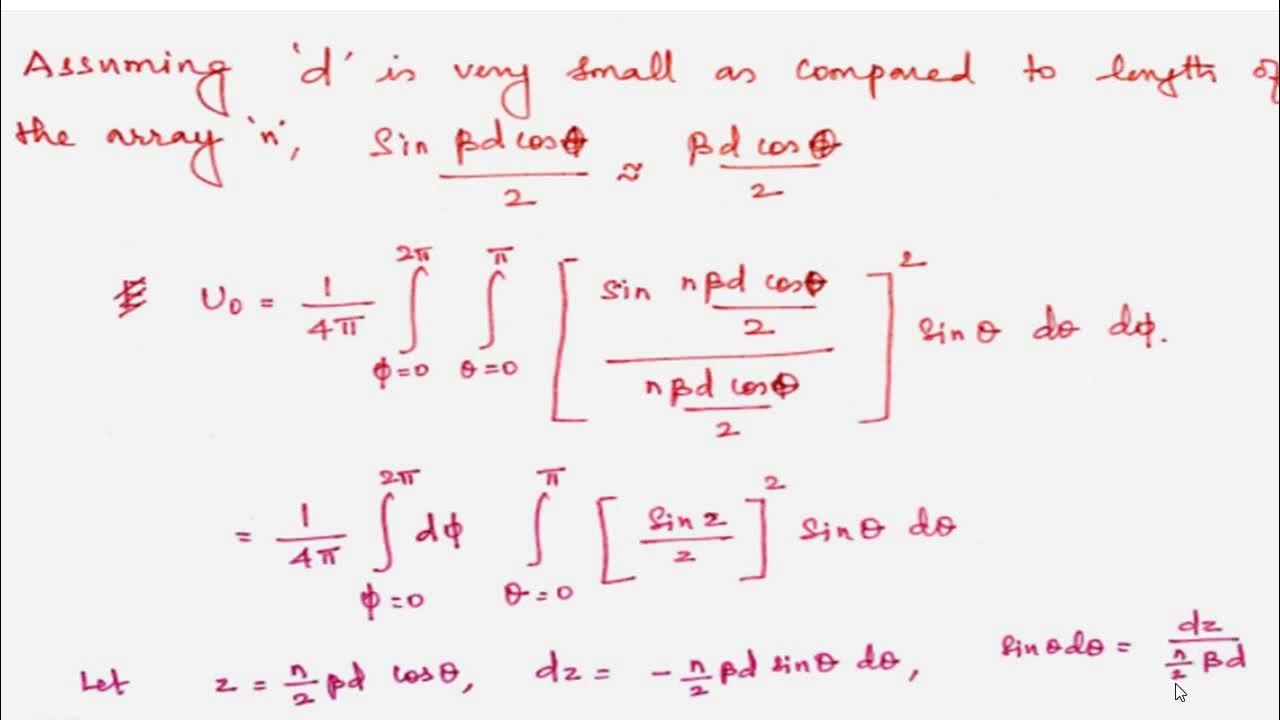 Assuming 'd' is very small as compared to length of
the array 'n', Sin βd cosθ/2 ≈ βd cosθ/2
U₀ = 1/4π ∫_{ϕ=0}^{2π} ∫_{θ=0}^{π} [ sin nβd cosθ/2 / nβd cosθ/2 ]² sinθ dθ dϕ.
= 1/4π ∫_{ϕ=0}^{2π} dϕ ∫_{θ=0}^{π} [ sin z / z ]² sinθ dθ
Let z = n/2 βd cosθ, dz = - n/2 βd sinθ dθ, sinθdθ = dz / n/2 βd